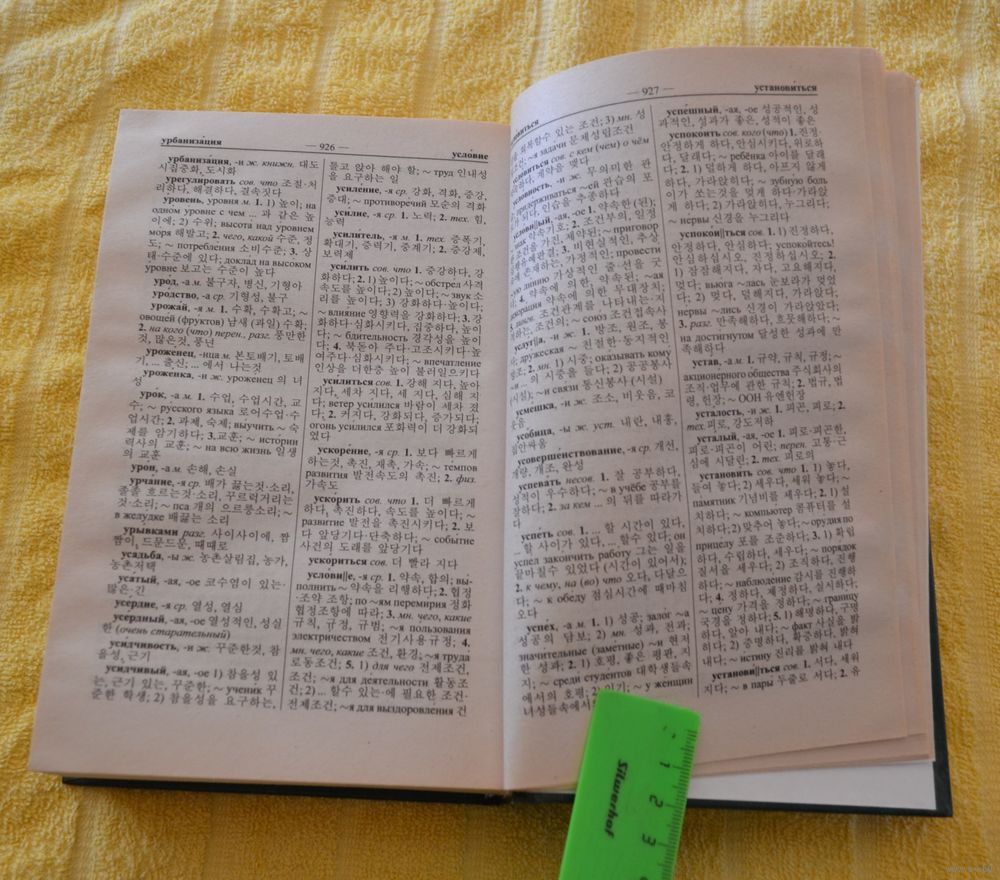 урбанизация
— 926 —
условие
урбанизация, -и ж. книжн. 대도
시집중화, 도시화
урегулировать сов. что 조절·처
리하다, 해결하다, 결속짓다
уровень, уровня м. 1. 1) 높이; на
одном уровне с чем ... 과 같은 높
이에; 2) 수위; высота над уровнем
моря 해발고; 2. чего, какой 수준, 정
도; ~ потребления 소비수준; 3. 상
태·수준에 있다; доклад на высоком
уровне 보고는 수준이 높다
урод, -а м. 불구자, 병신, 기형아
уродство, -а ср. 기형성, 불구
урожай, -я м. 1. 수확, 수확고; ~
овощей (фруктов) 남새 (과일) 수확;
2. на кого (что) перен., разг. 풍만한
것, 많은것, 풍년
уроженец, -нца м. 본토배기, 토배
기, ... 출신, ... 에서 나는것
уроженка, -и ж. уроженец 의 녀
성
урок, -а м. 1. 수업, 수업시간, 교
수; ~ русского языка 로어수업·수
업시간; 2. 과제, 숙제; выучить ~ 숙
제를 암기하다; 3.교훈; ~ истории
력사의 교훈; ~ на всю жизнь 일생
의 교훈
урон, -а м. 손해, 손실
урчание, -я ср. 배가 끓는것·소리,
졸졸 흐르는것·소리, 꾸르럭거리는
것·소리; ~ пса 개의 으르릉소리; ~
в желудке 배끓는 소리
урывками разг. 사이사이에, 짬
짬이, 드문드문, 때때로
усадьба, -ы ж. 농촌살림집, 농가,
농촌저택
усатый, -ая, -ое 코수염이 있는·
많은·긴
усердие, -я ср. 열성, 열심
усердный, -ая, -ое 열성적인, 성실
한 (очень старательный)
усидчивость, -и ж. 꾸준한것, 참
을성, 근기
усидчивый, -ая, -ое 1) 참을성 있
는, 근기 있는, 꾸준한; ~ ученик 꾸
준한 학생; 2) 참을성을 요구하는,
틀고 앉아 해야 할; ~ труд 인내성
을 요구하는 일
усиление, -я ср. 강화, 격화, 증강,
증대; ~ противоречий 모순의 격화
усилие, -я ср. 1. 노력; 2. тех. 힘,
능력
усилитель, -я м. 1. тех. 증폭기,
확대기, 증력기, 중계기; 2. 증강제,
보력제
усилить сов. что 1. 증강하다, 강
화하다; 2. 1)높이다; ~ обстрел 사격
속도를 높이다; 2) 높이다; ~ звук 소
리를 높이다; 3) 강화하다·높이다;
~ влияние 영향력을 강화하다; 3. 강
화하다·심화시키다, 집중하다, 높이
다; ~ бдительность 경각성을 높이
다; 4. 북돋아 주다·고조시키다·높
여주다·심화시키다; ~ впечатление
인상을 더한층 높이 불러일으키다
усилиться сов. 1. 강해 지다, 높아
지다, 세차 지다, 세 지다, 심해 지
다; ветер усилился 바람이 세차 졌
다; 2. 커지다, 강화되다, 증가되다;
огонь усилился 포화력이 더 강화되
었다
ускорение, -я ср. 1. 보다 빠르게
하는것, 촉진, 재촉, 가속; ~ темпов
развития 발전속도의 촉진; 2. физ.
가속도
ускорить сов. что 1. 더 빠르게
하다, 촉진하다, 속도를 높이다; ~
развитие 발전을 촉진시키다; 2. 보
다 앞당기다·단축하다; ~ событие
사건의 도래를 앞당기다
ускориться сов. 더 빨라 지다
услови||е, -я ср. 1. 약속, 합의; вы-
полнить ~ 약속을 리행하다; 2. 협정
·조약 조항; по ~ям перемирия 정화
협정조항에 따라; 3. мн. чего, какие
규칙, 규정, 규범; ~я пользования
электричеством 전기사용규정; 4.
мн. чего, какие 조건, 환경; ~я труда
로동조건; 5. 1) для чего 전제조건,
조건; ~я для деятельности 활동조
건; 2)... 할수 있는·에 필요한 조건·
전제조건; ~я для выздоровления 건
— 927 —
установиться
회복할수 있는 조건; 3) мн. 성
~я задачи 문제성립조건
сов. с кем (чем) о чём
계약을 맺다
-и ж. 무의미한 관
придерживаться ~ей 관습의 포
인습을 추종하다
-ый, -ая, -ое 1. 약속한 (된);
знак 약속기호; 2. 조건부의, 일정
조건을 가진, 제약된; ~ приговор
3. 비현실적인, 추상
존재하는, 가정적인; провести
-ую линию 가상적인 줄·선을 긋
4. 약속에 의한, 약속된; ~ая
декорация 약속에 의한 무대장치;
5. лингв. 조건관계를 나타내는·지
적하는, 조건의; ~ союз 조건접속사
услуг||а, -и ж. 1. 방조, 원조, 봉
사; дружеская ~ 친절한·동지적인
방조; 2. мн. 1) 시중; оказывать кому
~и ... 의 시중을 들다; 2) 공공봉사
(시설); ~и связи 통신봉사 (시설)
усмешка, -и ж. 조소, 비웃음, 코
웃음
усобица, -ы ж. уст. 내란, 내홍,
집안싸움
усовершенствование, -я ср. 개선,
개량, 개조, 완성
успевать несов. 1. 잘 공부하다,
성적이 우수하다; ~ в учёбе 공부를
잘하다; 2. за кем ... 의 뒤를 따라가
다
успеть сов. 1. ... 할 시간이 있다,
... 할 사이가 있다, ... 할수 있다; он
успел закончить работу 그는 일을
끝마칠수 있었다 (시간이 있어서);
2. к чему, на (во) что 오다, 다달으
다; ~ к обеду 점심시간에 때마침
오다
успех, -а м. 1. 1) 성공; залог ~а
성공의 담보; 2) мн. 성과, 전과;
значительные (заметные) ~и 현저
한 성과; 2. 1) 호평, 좋은 평판, 지
지; ~ среди студентов 대학생들속
에서의 호평; 2) 인기; ~ у женщин
녀성들속에서의
успешный, -ая, -ое 성공적인, 성
과적인, 성과가 좋은, 성적이 좋은
успокоить сов. кого (что) 1. 진정·
안정하게 하다, 안심시키다, 위로하
다, 달래다; ~ ребёнка 아이를 달래
다; 2. 1) 덜하게 하다, 아프지 않게
하다, 가라앉히다; ~ зубную боль
이가 쏘는것을 멎게 하다·가라앉
히다; 2) 가라앉히다, 누그리다;
~ нервы 신경을 누그리다
успокои||ться сов. 1. 1) 진정하다,
안정하다, 안심하다; успокойтесь!
안심하십시오, 진정하십시오; 2.
1) 잠잠해지다, 자다, 고요해지다,
멎다; вьюга ~лась 눈보라가 멎었
다; 2) 멎다, 덜해지다, 가라앉다;
нервы ~лись 신경이 가라앉았다;
3. разг. 만족해하다, 흐뭇해하다; ~
на достигнутом 달성한 성과에 만
족해하다
устав, -а м. 1. 규약, 규칙, 규정; ~
акционерного общества 주식회사의
조직·업무에 관한 규칙; 2. 법규, 법
령, 헌장; ~ ООН 유엔헌장
усталость, -и ж. 1. 피곤, 피로; 2.
тех. 피로, 강도저하
усталый, -ая, -ое 1. 피로·피곤한,
피로·피곤이 어린; перен. 고통·근
심에 시달린; 2. тех. 피로의
установить сов. что 1. 1) 놓다,
들여 놓다; 2) 세우다, 세워 놓다; ~
памятник 기념비를 세우다; 2. 1) 설
치하다; ~ компьютер 콤퓨터를 설
치하다; 2) 맞추어 놓다; ~ орудия по
прицелу 포를 조준하다; 3. 1) 확립
하다, 수립하다, 세우다; ~ порядок
질서을 세우다; 2) 조직하다, 진행
하다; ~ наблюдение 감시를 진행하
다; 4. 정하다, 제정하다, 실시하다;
~ цену 가격을 정하다; ~ границу
국경을 정하다; 5. 1) 해명하다, 구명
하다, 알아 내다; ~ факт 사실을 밝
히다; 2) 증명하다, 확증하다, 밝혀
내다; ~ истину 진리를 밝혀 내다
установи||ться сов. 1. 서다, 세워
지다; ~ в пары 두줄로 서다; 2. 유
Silwerhof
1
2
3